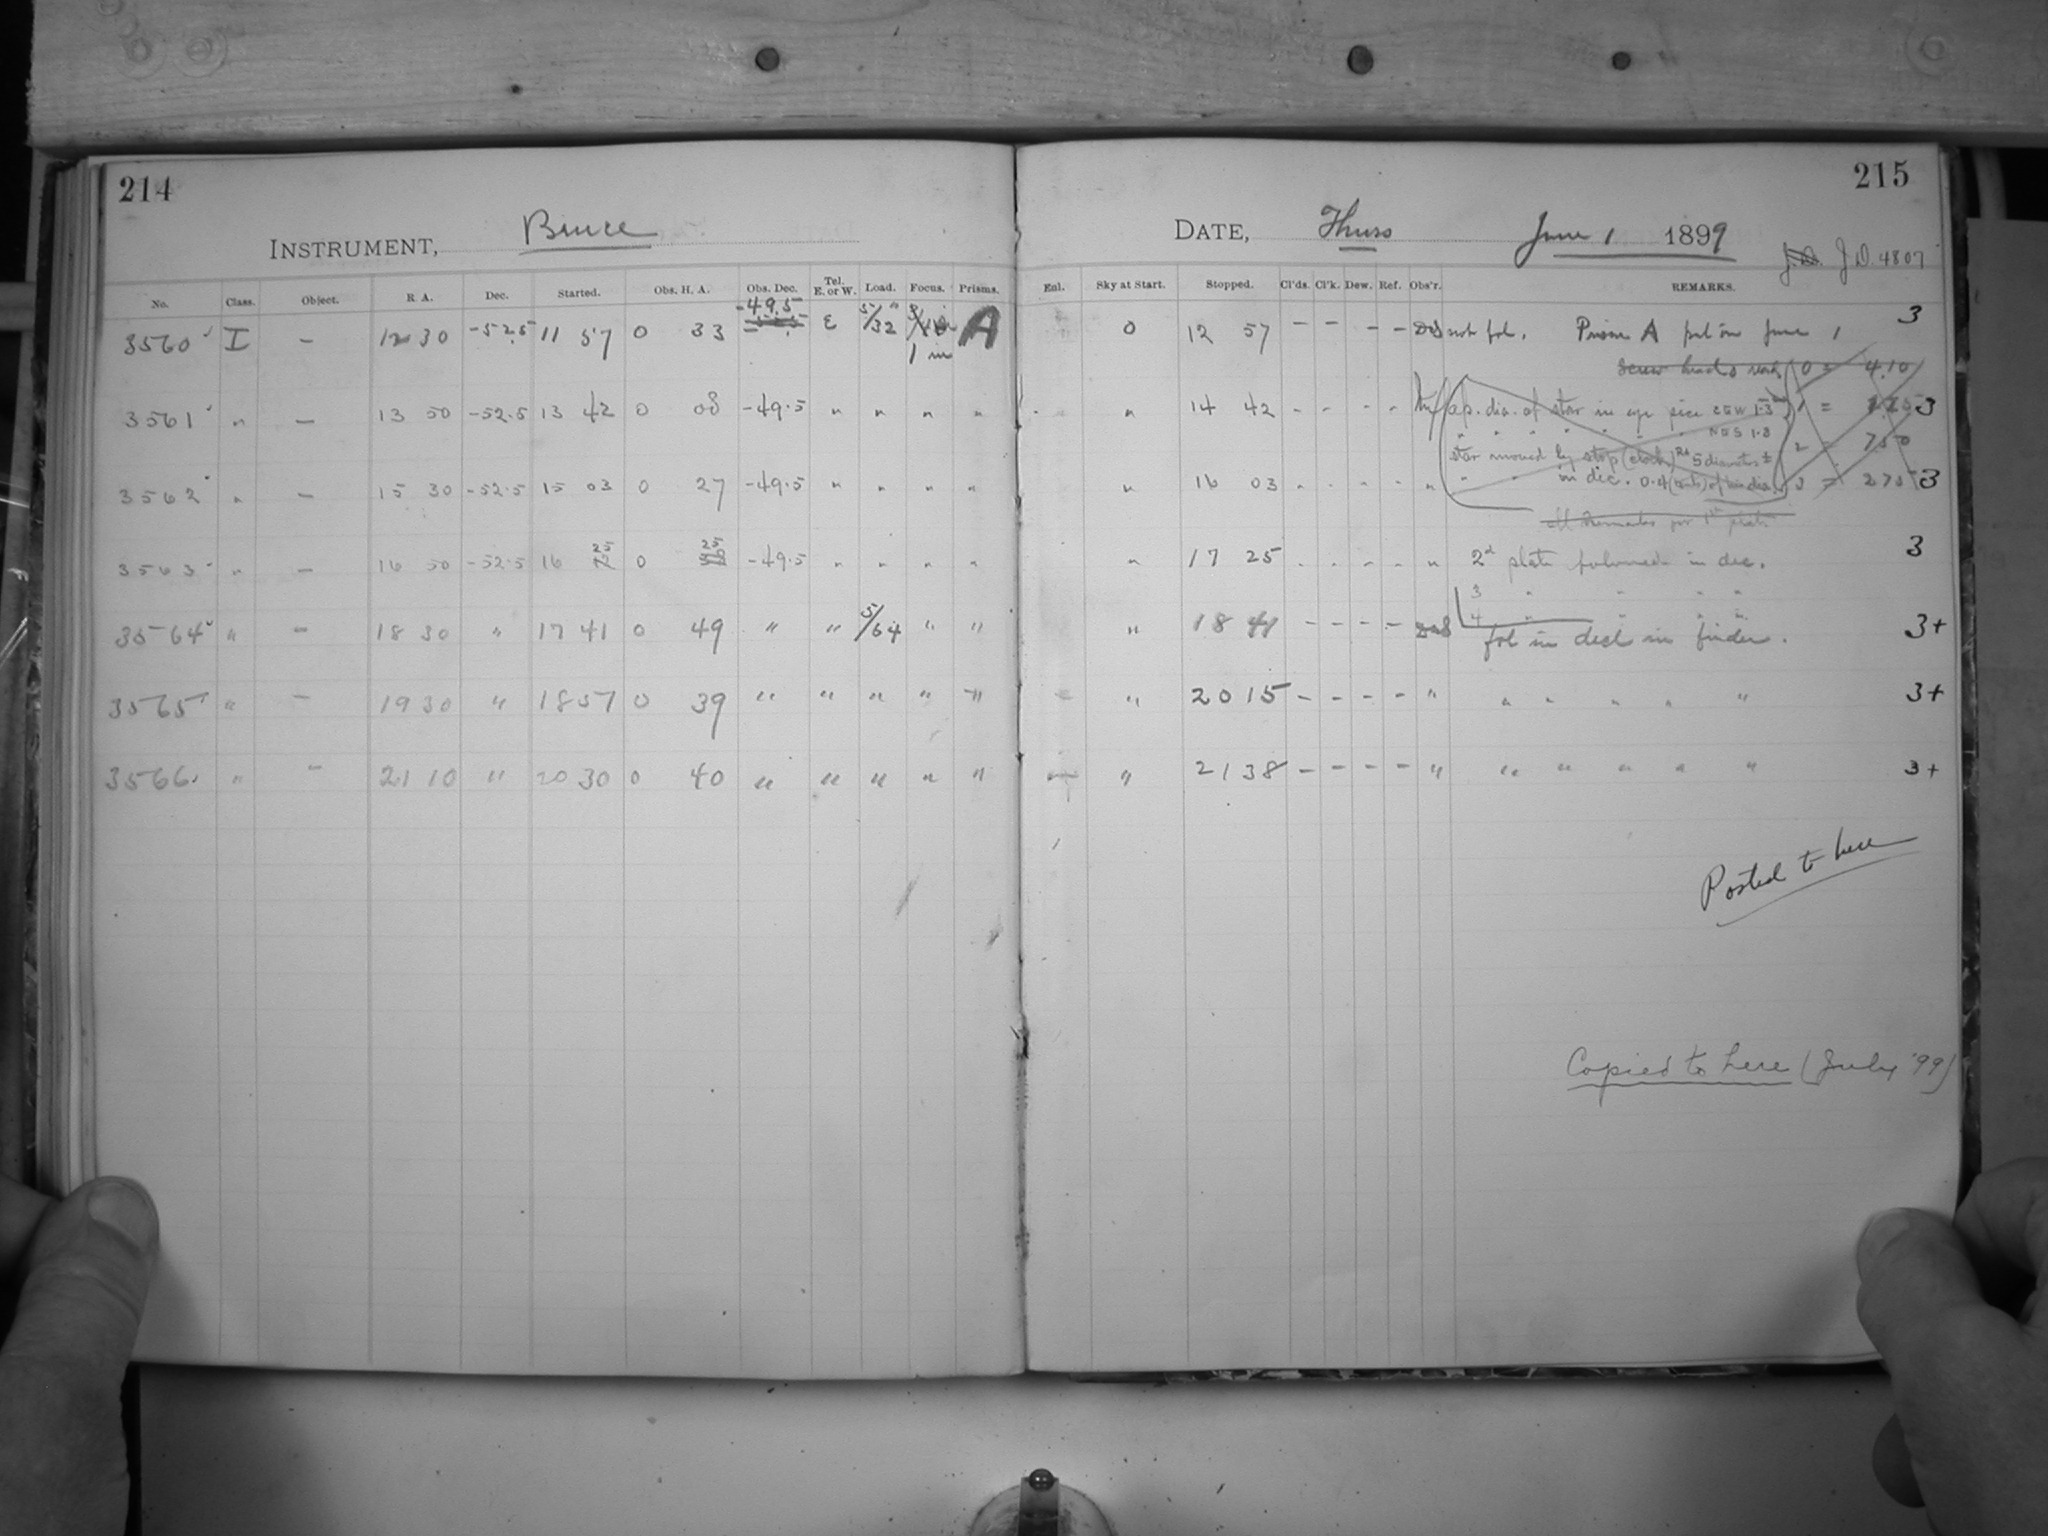 214
215
INSTRUMENT, Bruce
DATE, Thurs June 1 1899
J.D. J.D. 4807
No. Class. Object. R. A. Dec. Started. Obs. H. A. Obs. Dec. Tel. E. or W. Load. Focus. Prisms. Enl. Sky at Start. Stopped. Cl'ds. Cl'k. Dew. Ref. Obs'r. REMARKS.
-49.5
3560 I - 12 30 -52.5 11 57 0 33 E 5/32 A 0 12 57 - - - - not fol. Prism A put on June 1 3
1 in
0 = 4.10
3561 " - 13 50 -52.5 13 42 0 08 -49.5 " " " " " 14 42 - - - - ap. dia. of star in eye piece E&W 1.3 1 = 3
N&S 1.3
2 = 750
star moved by stop (clock) 5 diameters ±
3562 " - 15 30 -52.5 15 03 0 27 -49.5 " " " " " 16 03 - - - - " " " in dec. 0.4 3 = 275 3
3563 " - 16 50 -52.5 16 25 0 25 -49.5 " " " " " 17 25 - - - - " 2d plate followed in dec. 3
3 " " " "
4 " " " "
3564 " - 18 30 " 17 41 0 49 " " 5/64 " " " 18 41 - - - - fol in decl in finder. 3+
3565 " - 19 30 " 18 57 0 39 " " " " " " 20 15 - - - - " " " " " " 3+
3566 " - 21 10 " 20 30 0 40 " " " " " " 21 38 - - - - " " " " " " 3+
Posted to here
Copied to here (July '99)